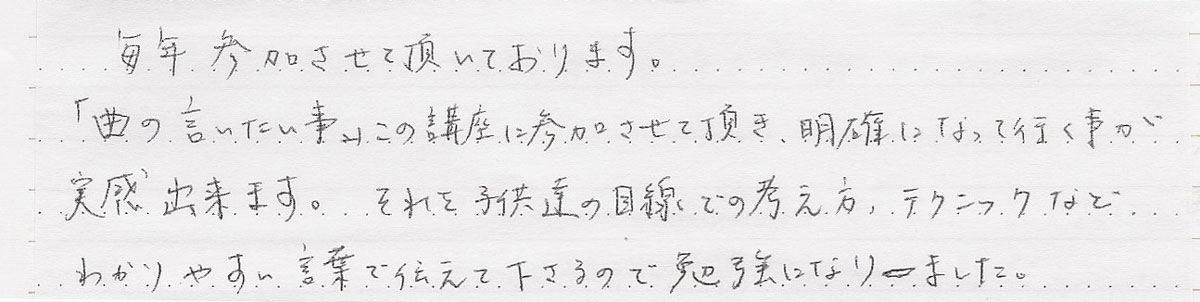 毎年 参加させて頂いております。
「曲の言いたい事」この講座に参加させて頂き、明確になって行く事が
実感出来ます。それを子供達の目線での考え方、テクニックなど
わかりやすい言葉で伝えて下さるので勉強になりました。